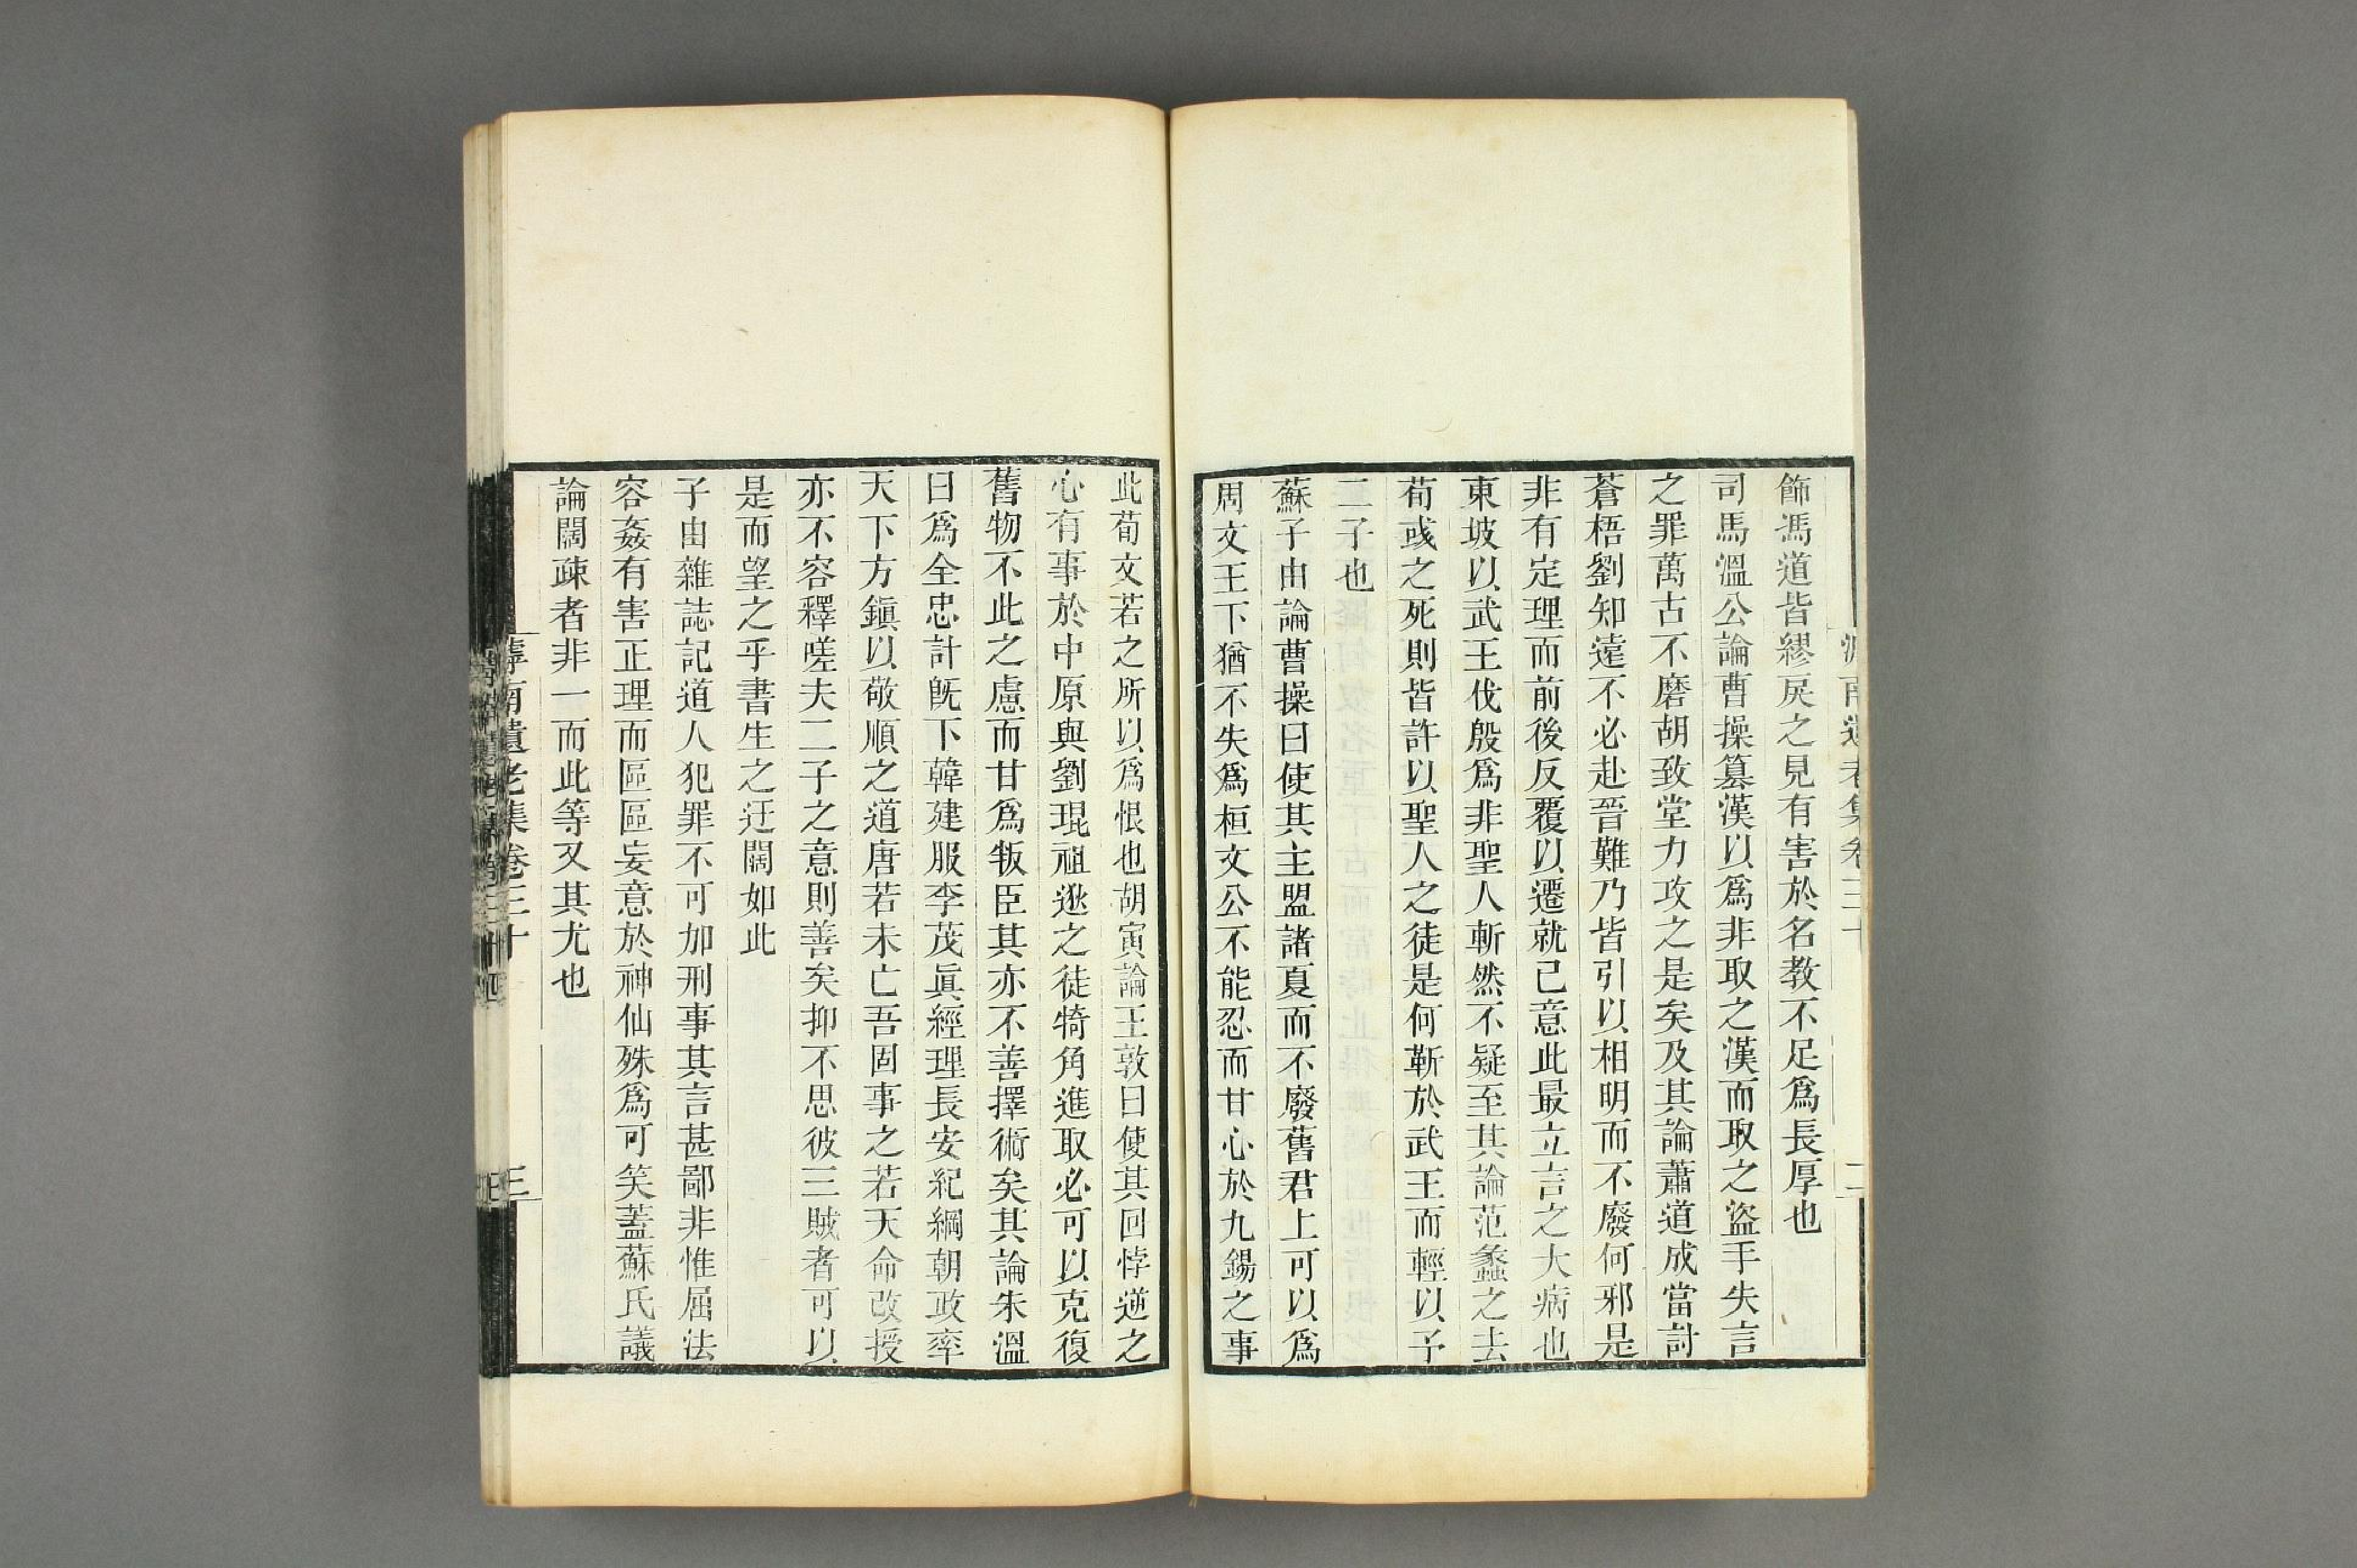 飾馮道皆繆戾之見有害於名教不足爲長厚也
司馬溫公論曹操簒漢以爲非取之漢而取之盜手失言
之罪萬古不磨胡致堂力攻之是矣及其論蕭道成當討
蒼梧劉知遠不必赴晉難乃皆引以相明而不廢何邪是
非有定理而前後反覆以遷就己意此最立言之大病也
東坡以武王伐殷爲非聖人斬然不疑至其論范蠡之去
荀彧之死則皆許以聖人之徒是何靳於武王而輕以予
二子也
蘇子由論曹操曰使其主盟諸夏而不廢舊君上可以爲
周文王下猶不失爲桓文公不能忍而甘心於九錫之事
此荀文若之所以爲恨也胡寅論王敦曰使其回悖逆之
心有事於中原與劉琨祖逖之徒犄角進取必可以克復
舊物不此之慮而甘爲叛臣其亦不善擇術矣其論朱溫
曰爲全忠計旣下韓建服李茂眞經理長安紀綱朝政率
天下方鎭以敬順之道唐若未亡吾固事之若天命改授
亦不容釋嗟夫二子之意則善矣抑不思彼三賊者可以
是而望之乎書生之迂闊如此
子由雜誌記道人犯罪不可加刑事其言甚鄙非惟屈法
容姦有害正理而區區妄意於神仙殊爲可笑蓋蘇氏議
論闊疎者非一而此等又其尤也
滹南遺老集卷三十
三